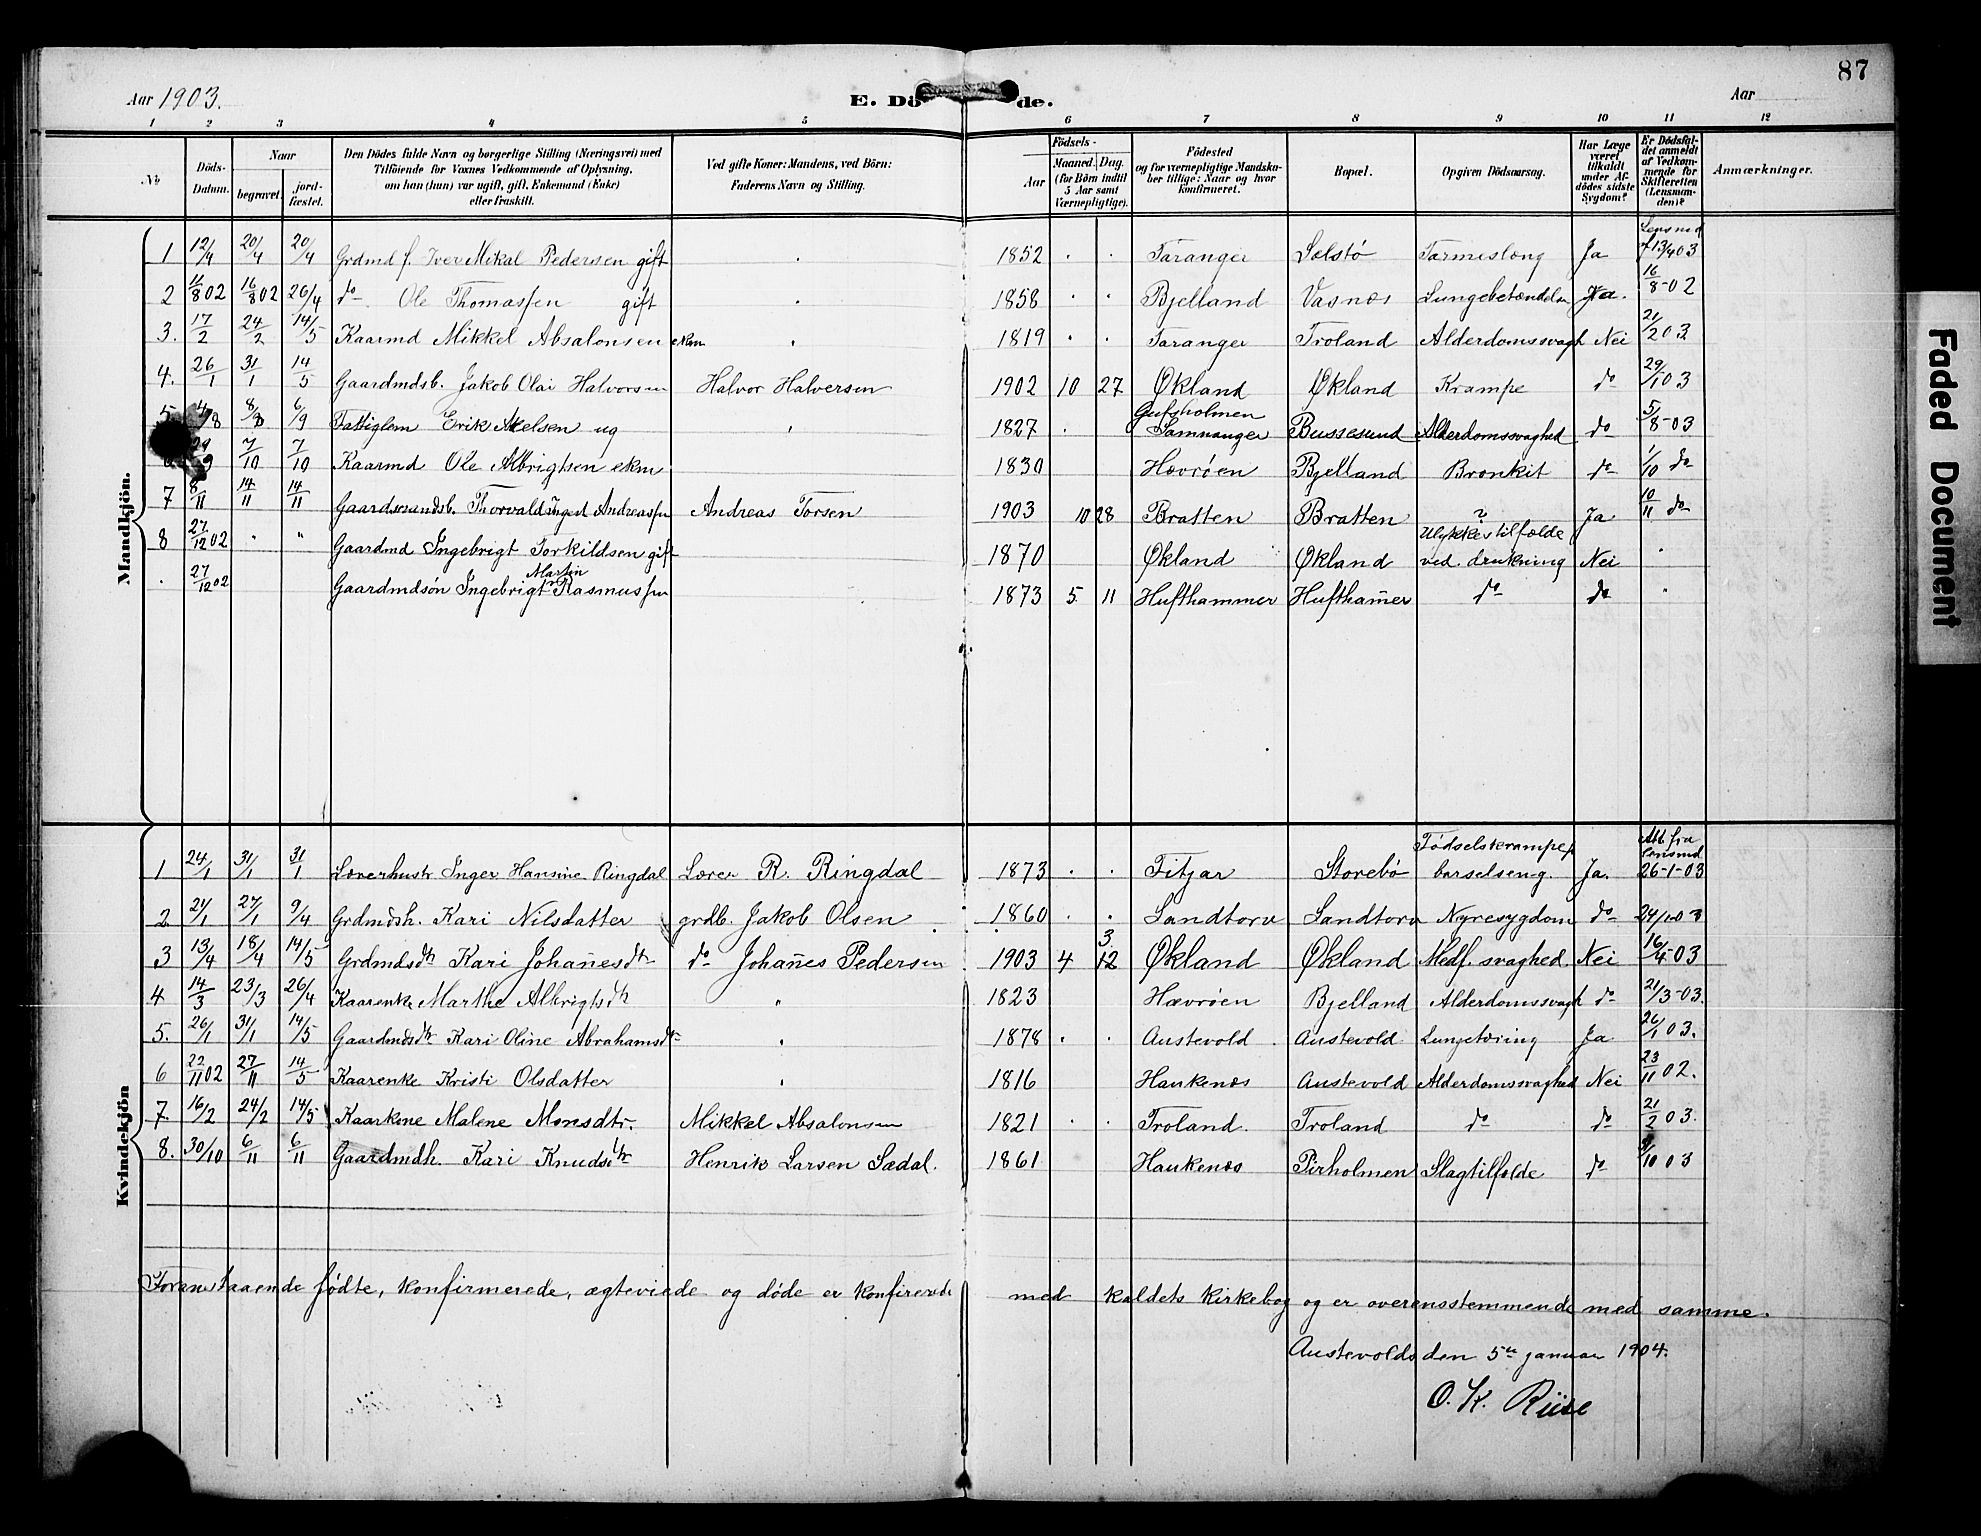 87
Aar 1903.
E. Dö de.
Aar
1 2 3 4 5 6 7 8 9 10 11 12
No
Döds-Datum.
Naar
begravet.
jord-fæstet.
Den Dödes fulde Navn og borgerlige Stilling (Næringsvei) med
Tilföiende for Voxnes Vedkommende af Oplysning,
om han (hun) var ugift, gift, Enkemand (Enke)
eller fraskilt.
Ved gifte Koner: Mandens, ved Börn:
Faderens Navn og Stilling.
Födsels-
Aar
Maaned. Dag.
(for Börn indtil
5 Aar samt
Værnepligtige).
Födested
og for værnepligtige Mandska-
ber tillige: Naar og hvor
konfirmeret.
Bopæl.
Opgiven Dödsaarsag.
Har Læge
været
tilkaldt
under Af-
dödes sidste
Sygdom?
Er Dödsfal-
det anmeldt
af Vedkom-
mende for
Skifteretten
(Lensman-
den)?
Anmærkninger.
Mandkjön.
1 12/4 20/4 20/4 Grdmd f. Iver Mikal Pedersen gift 1852 Taranger Selstö Tarmeslæng Ja Lensmd 13/4 03
2 11/8 02 16/8 02 26/4 do Ole Thomassen gift 1858 Bjelland Vasnes Lungebetændelse Ja. 16/8-02
3. 17/2 24/2 14/5 Kaarmd Mikkel Absalonsen ekm 1819 Taranger Troland Alderdomssvagh Nei 21/2 03
4. 26/1 31/1 14/5 Gaardmdsb. Jakob Olai Halvorsen Halvor Halversen 1902 10 27 Økland Økland Krampe do 29/1 03
5 4/8 8/8 6/9 Fattiglem Erik Axelsen ug 1827 Gufsholmen Samnanger Bussesund Alderdomssvaghed do 5/8-03
29/9 7/10 7/10 Kaarmd Ole Albrigtsen ekm 1830 Hævröen Bjelland Bronkit do 1/10 do
7 8/11 14/11 14/11 Thorvald Andreassen Andreas Torsen 1903 10 28 Bratten Bratten ? Ja 10/11 do
8 27/12 02 " " Gaardmd Ingebrigt Torkildsen gift 1870 Økland Økland Ulykkestilfælde ved. drukning Nei "
27/12 02 Gaardmdsön Ingebrigt Martin Rasmussen 1873 5 11 Hufthammer Hufthamer do do "
Kvindekjön
1 24/1 31/1 31/1 Lærerhustr Inger Hansine Ringdal Lærer R. Ringdal 1873 Fitjar Storebö Födselskrampe barselseng. Ja. Att. fra lensmd 26-1-03
2. 21/1 27/1 9/4 Grdmdsh. Kari Nilsdatter grdb. Jakob Olsen 1860 Landtorv Landtorv Nyresygdom do 24/1-03
3 13/4 18/4 14/5 Grdmdsdtr Kari Johanesdtr do Johanes Pedersen 1903 4 3. 12 Økland Økland Medf. svaghed Nei 16/4-03
4 14/3 23/3 26/4 Kaarenke Marthe Albrigtsdtr " 1823 Hævröen Bjelland Alderdomssvagh do 21/3-03.
5. 26/1 31/1 14/5 Gaardmdsdtr Kari Oline Abrahamsdtr 1878 Austevold Austevold Lungetæring Ja 26/1 03.
6 22/11 02 27/11 14/5 Kaarenke Kristi Olsdatter 1816 Haukenæs Austevold Alderdomssvaghed Nei 23/11 02.
7. 16/2 24/2 14/5 Kaarkone Malene Monsdtr. Mikkel Absalonsen 1821 Troland. Troland do do 21/2 03.
8. 30/10 6/11 6/11 Gaardmdh. Kari Knudsdtr Henrik Larsen Sædal. 1861 Haukenæs Pirholmen Slagtilfælde do 10 03
Foranstaaende födte, konfirmerede, ægteviede og döde er konfirerede med kaldets kirkebog og er overensstemmende med samme.
Austevolds den 5te januar 1904.
O. K. Riise
Faded Document